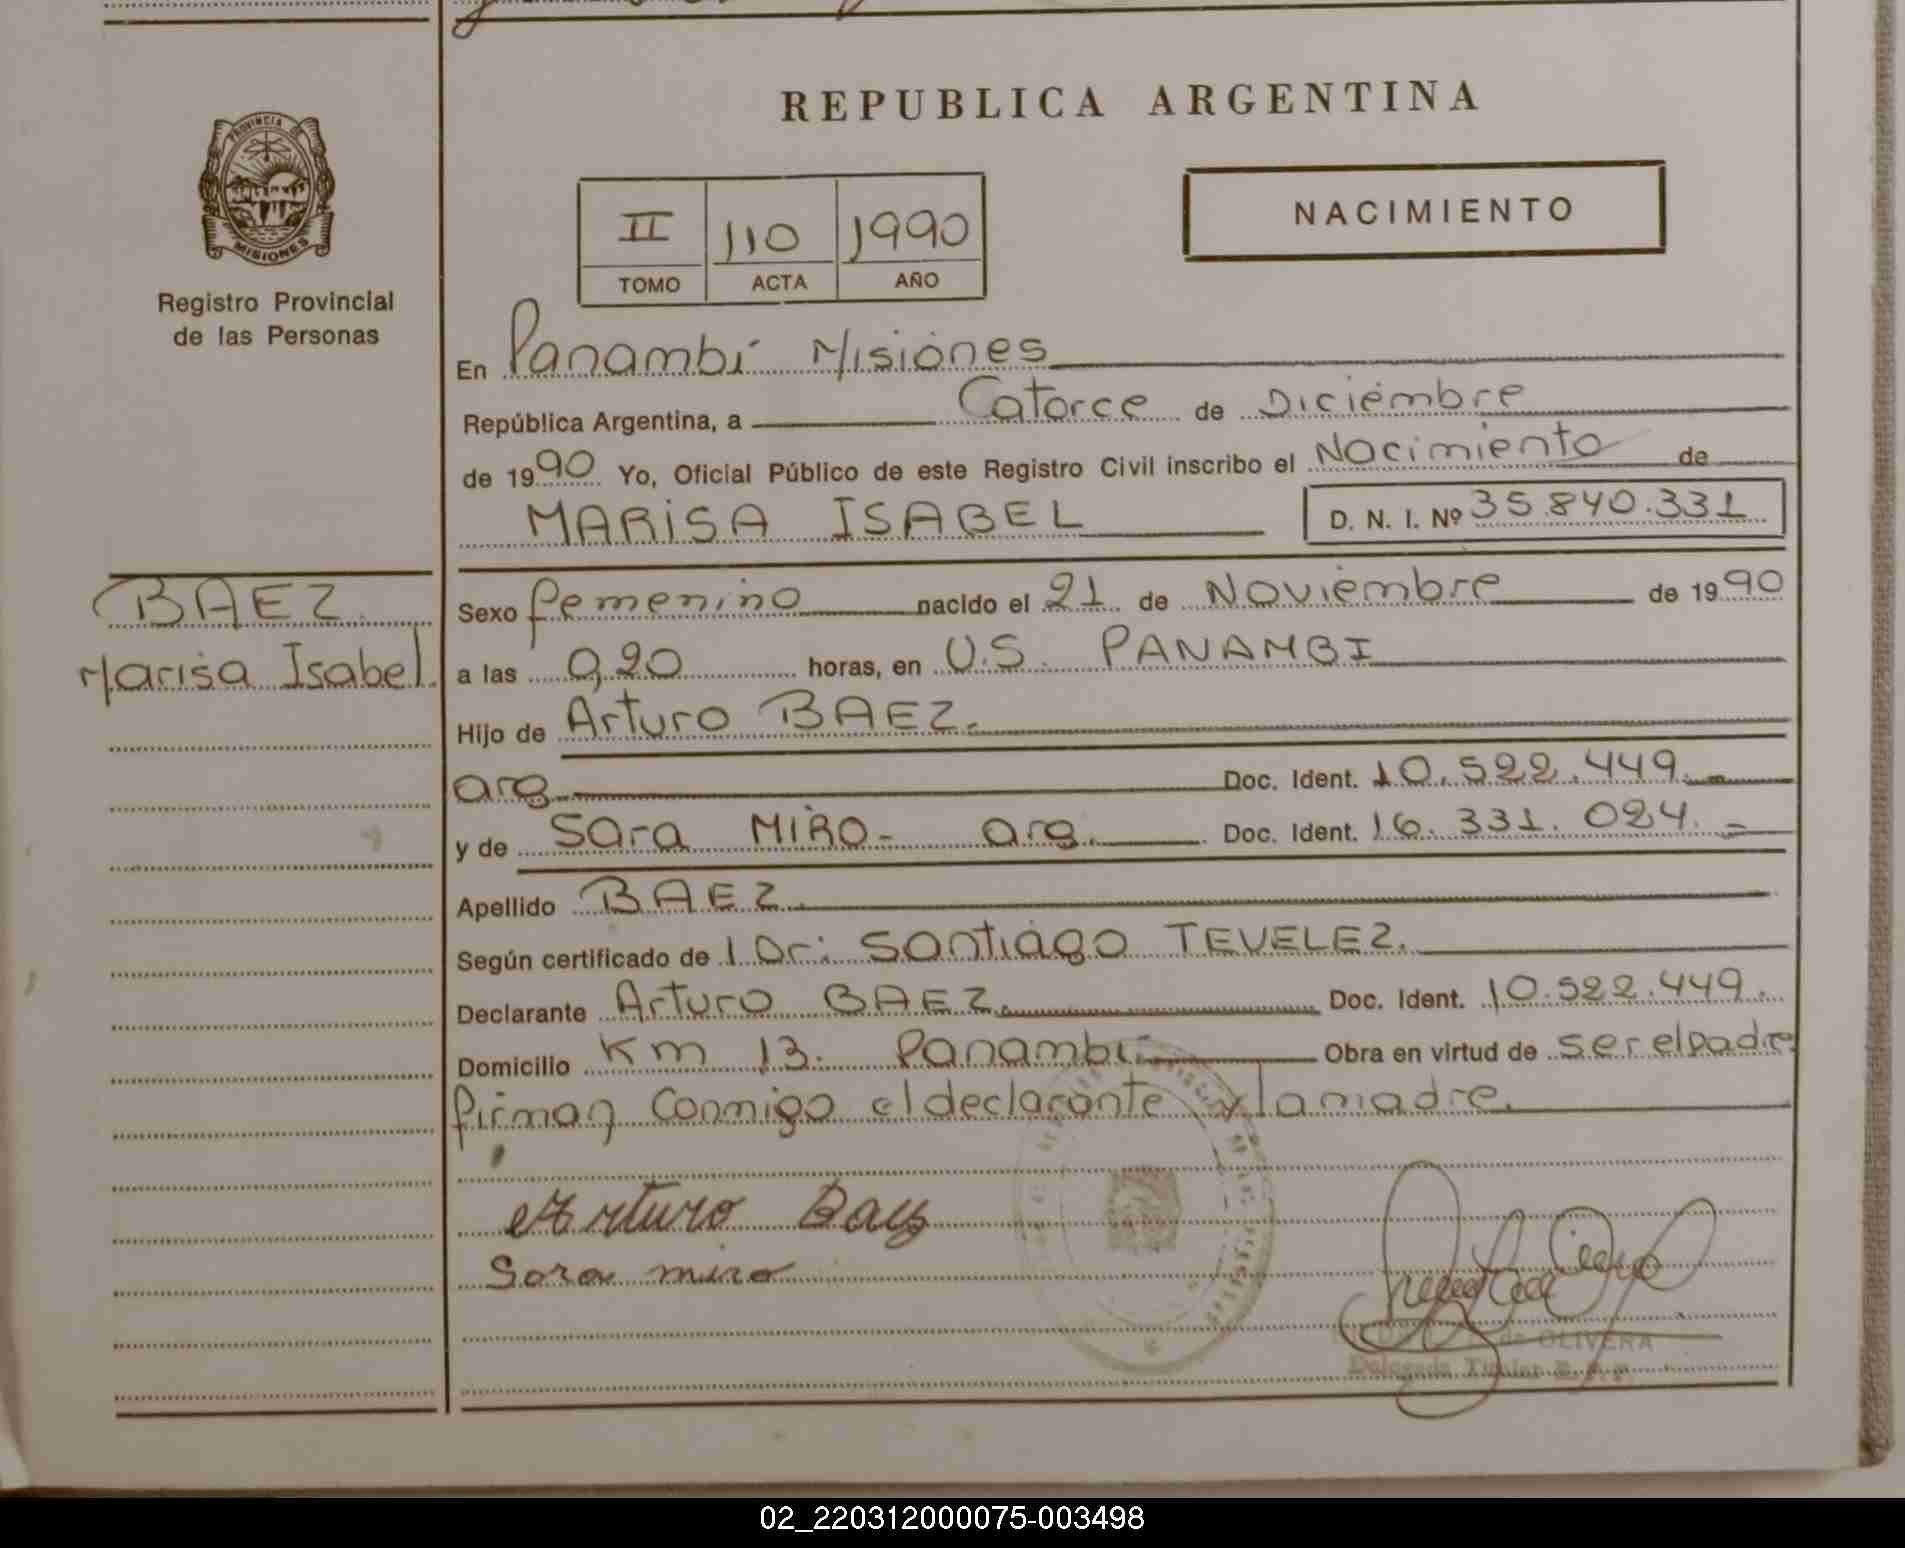 REPUBLICA ARGENTINA
PROVINCIA DE
MISIONES
Registro Provincial
de las Personas
II 110 1990
TOMO ACTA AÑO
NACIMIENTO
En Panambí Misiones
República Argentina, a Catorce de Diciembre
de 1990 Yo, Oficial Público de este Registro Civil inscribo el Nacimiento de
MARISA ISABEL D. N. I. Nº 35.840.331
BAEZ
Marisa Isabel.
Sexo femenino nacido el 21 de Noviembre de 1990
a las 0,20 horas, en U.S. PANAMBI
Hijo de Arturo BAEZ.
arg Doc. Ident. 10.522.449.-
y de Sara MIRO- arg. Doc. Ident. 16.331.024.-
Apellido BAEZ.
Según certificado de l Dr: Santiago TEVELEZ.
Declarante Arturo BAEZ. Doc. Ident. 10.522.449.
Domicilio Km 13. Panambí Obra en virtud de ser el padre
firman conmigo el declarante y la madre.
Arturo Baez
Sara miro
de OLIVERA
Delegada Titular
02_220312000075-003498